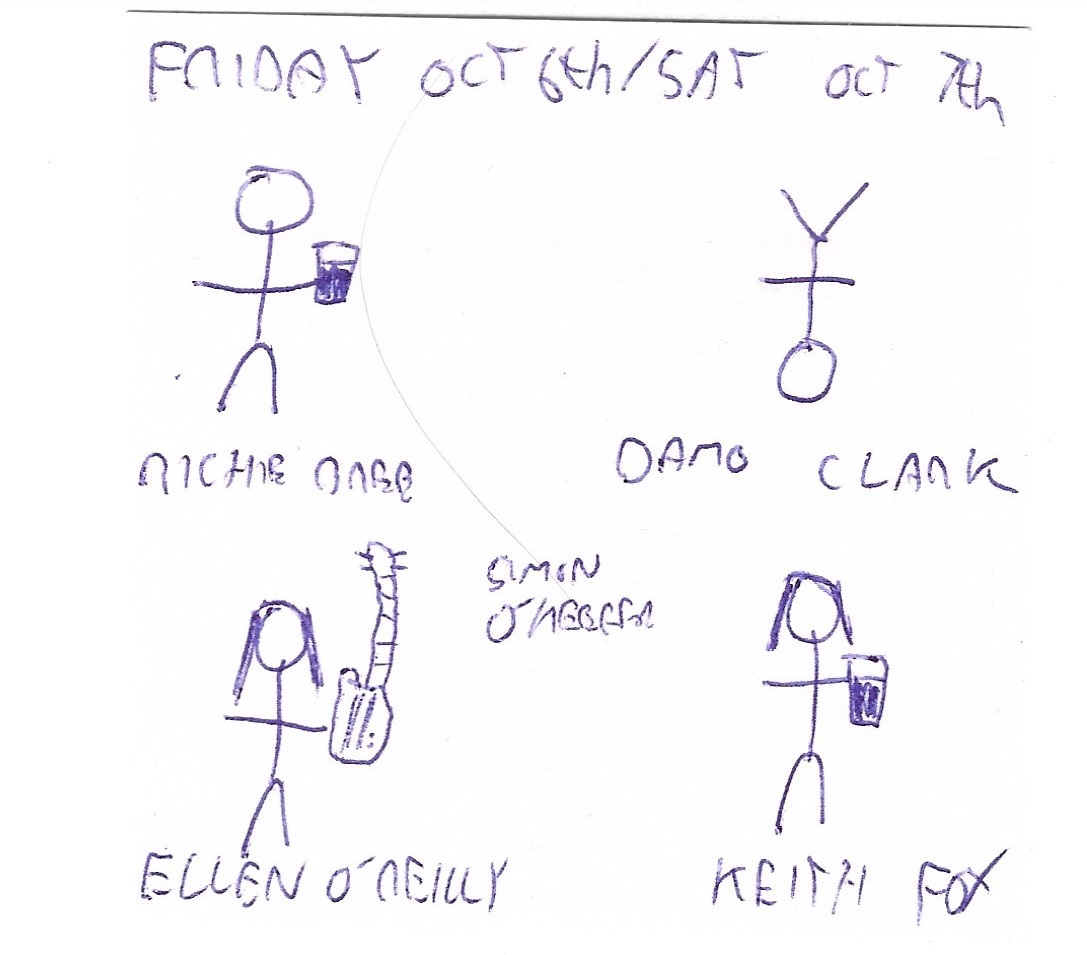 FRIDAY OCT 6th/SAT OCT 7th
RICHIE BREE
DAMO CLARK
SIMON
O'KEEFFE
ELLEN O'REILLY
KEITH FOX